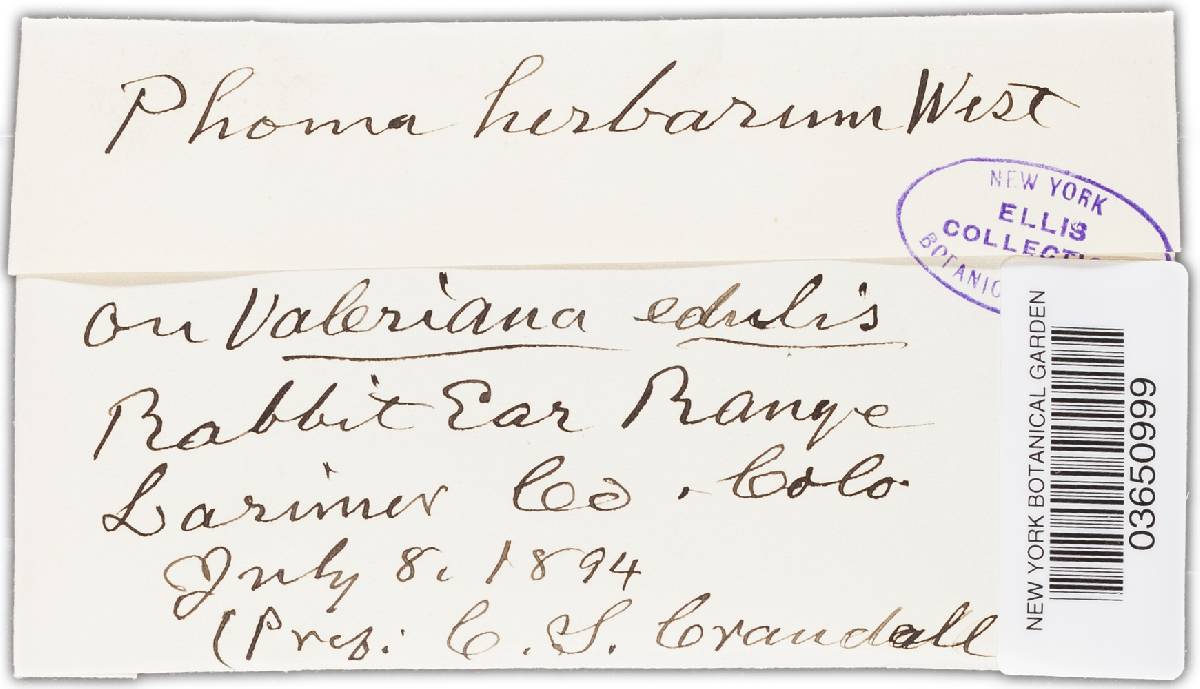 Phoma herbarum West
NEW YORK
ELLIS
COLLECTI
BOTANIC
on Valeriana edulis
Rabbit Ear Range
Larimer Co. Colo.
July 8, 1894
(Prof. C. S. Crandall
NEW YORK BOTANICAL GARDEN
03650999